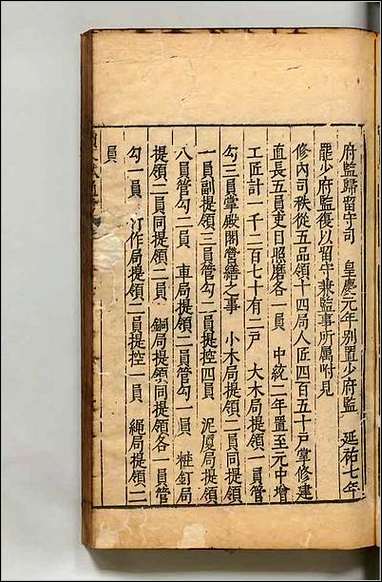 府監歸留守司　皇慶元年別置少府監　延祐七年
罷少府監復以留守兼監事所属附見
修內司秩從五品領十四局人匠四百五十戶掌修建
直長五員吏目照磨各一員　中統二年置至元中增
工匠計一千二百七十有二戶　大木局提領七員管
勾三員掌殿閣營繕之事　小木局提領二員同提
一員副提領三員管勾二員提控四員　泥厦局提領
八員管勾二員　車局提領二員管勾一員　粧釘局
提領二員同提領二員　銅局提領同提領各一員管
勾一員　竹作局提領二員提控一員　繩局提領二
員